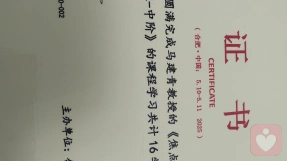 证 书
CERTIFICATE
(合肥·中国: 5.10-5.11 2025)
圆满完成马建青教授的《焦点
—中阶》的课程学习共计 16
0-002
主办单位: